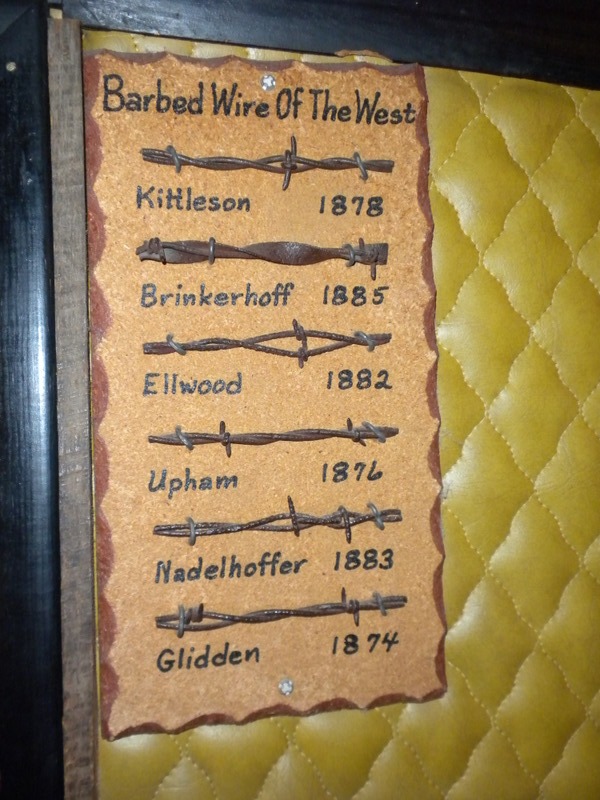 Barbed Wire Of The West
Kittleson 1878
Brinkerhoff 1885
Ellwood 1882
Upham 1876
Nadelhoffer 1883
Glidden 1874